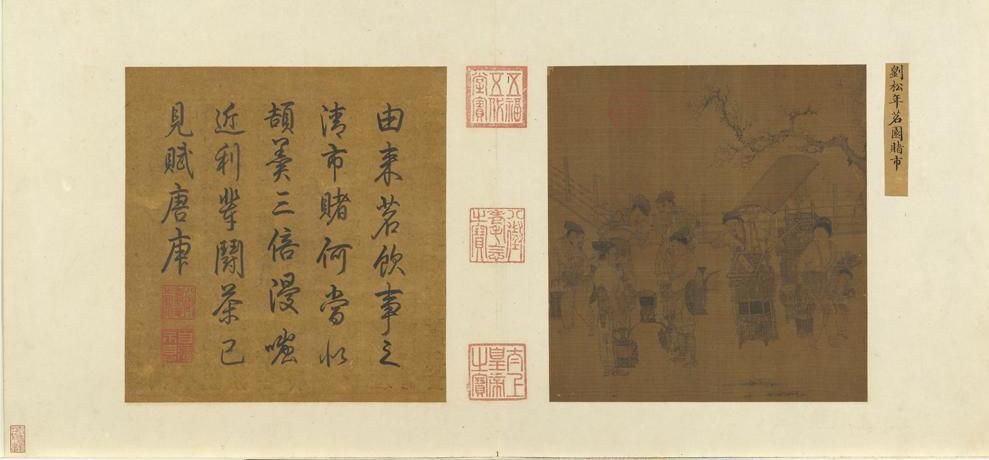 劉松年茗園賭市
五福
五代
堂寶
八徵
耄念
之寶
太上
皇帝
之寶
由來茗飲事之
清市賭何當狀
頡羹三倍漫嗤
近利輩鬪茶已
見賦唐庚